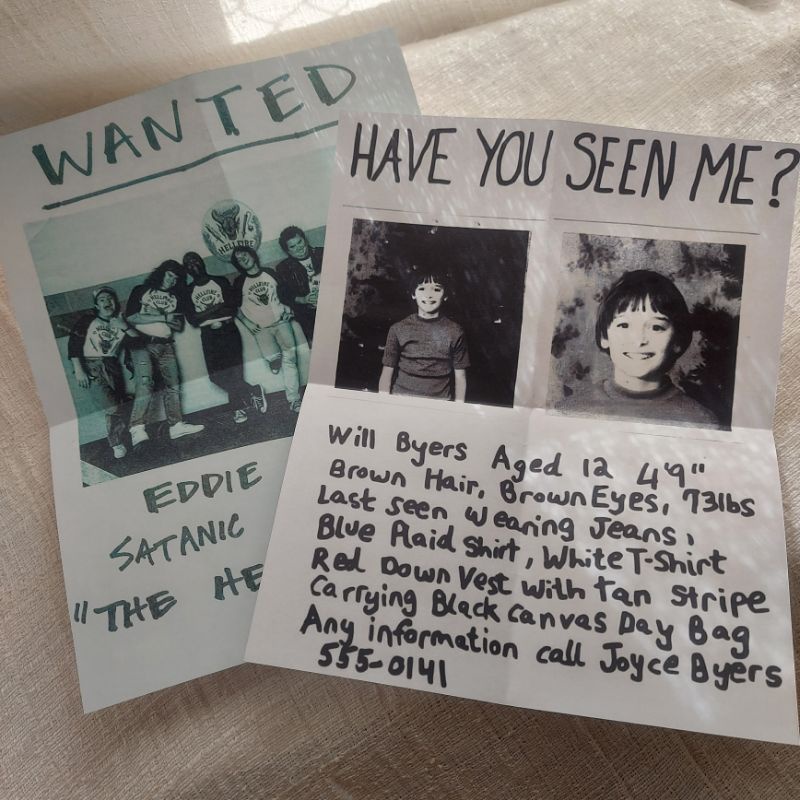 WANTED
HELLFIRE
HELLFIRE CLUB
HELLFIRE CLUB
EDDIE
SATANIC
"THE HE
HAVE YOU SEEN ME?
Will Byers Aged 12 4'9"
Brown Hair, Brown Eyes, 73lbs
Last seen wearing Jeans,
Blue Plaid Shirt, White T-Shirt
Red Down Vest with tan stripe
Carrying Black Canvas Day Bag
Any information call Joyce Byers
555-0141